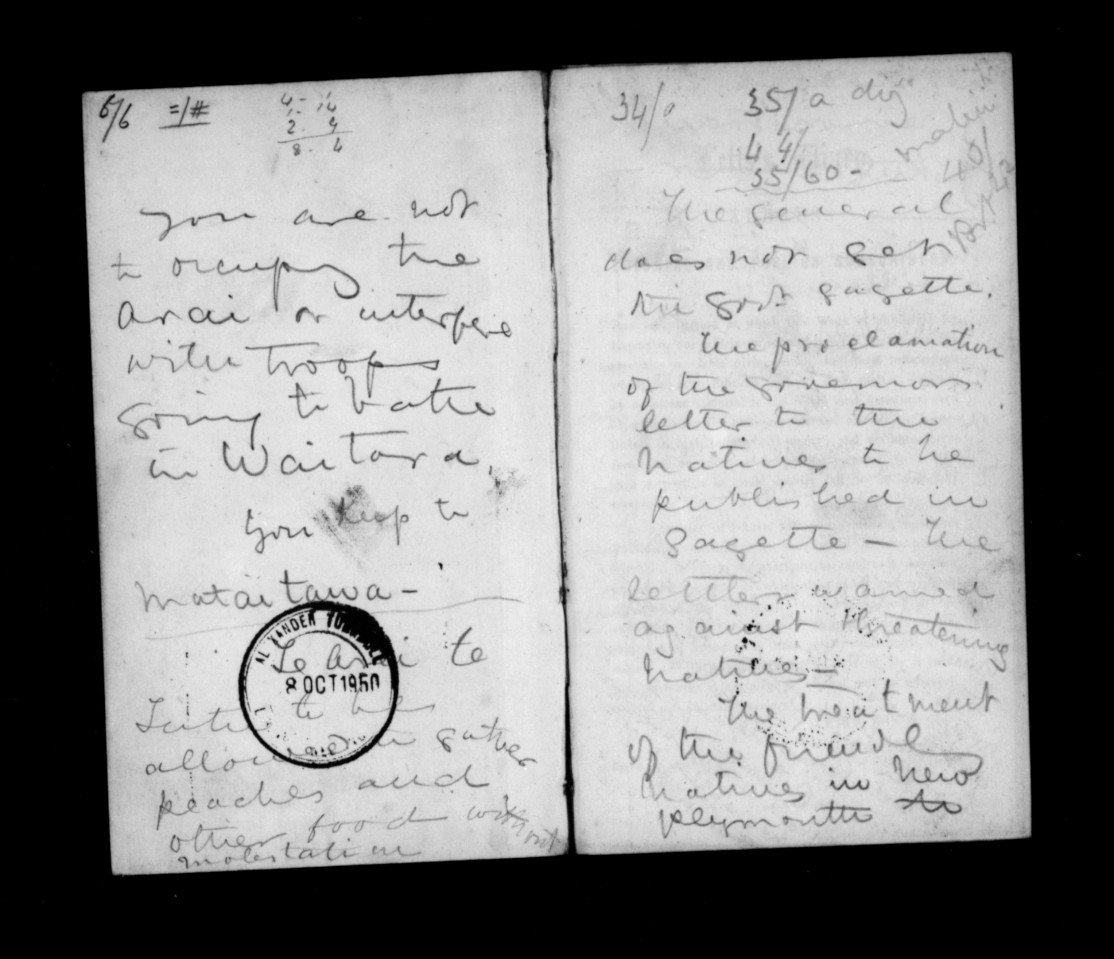 6/6 =/#
4 - 14
2 . 9
8 . 4
you are not
to occupy the
Arai or interfere
with troops
going to bathe
in Waitara.
you keep to
Mataitawa -
Te Arai te
to be
allowed to gather
peaches and
other food without
molestation
ALEXANDER TURNBULL
8 OCT 1950
34/0 35/ a day
44/
35/60 - 40/
The general
does not get
the govt gazette.
The proclamation
of the governors
letter to the
Natives to be
published in
Gazette - The
letters warned
against threatening
Natives -
The treatment
of the friendly
Natives in New
Plymouth to